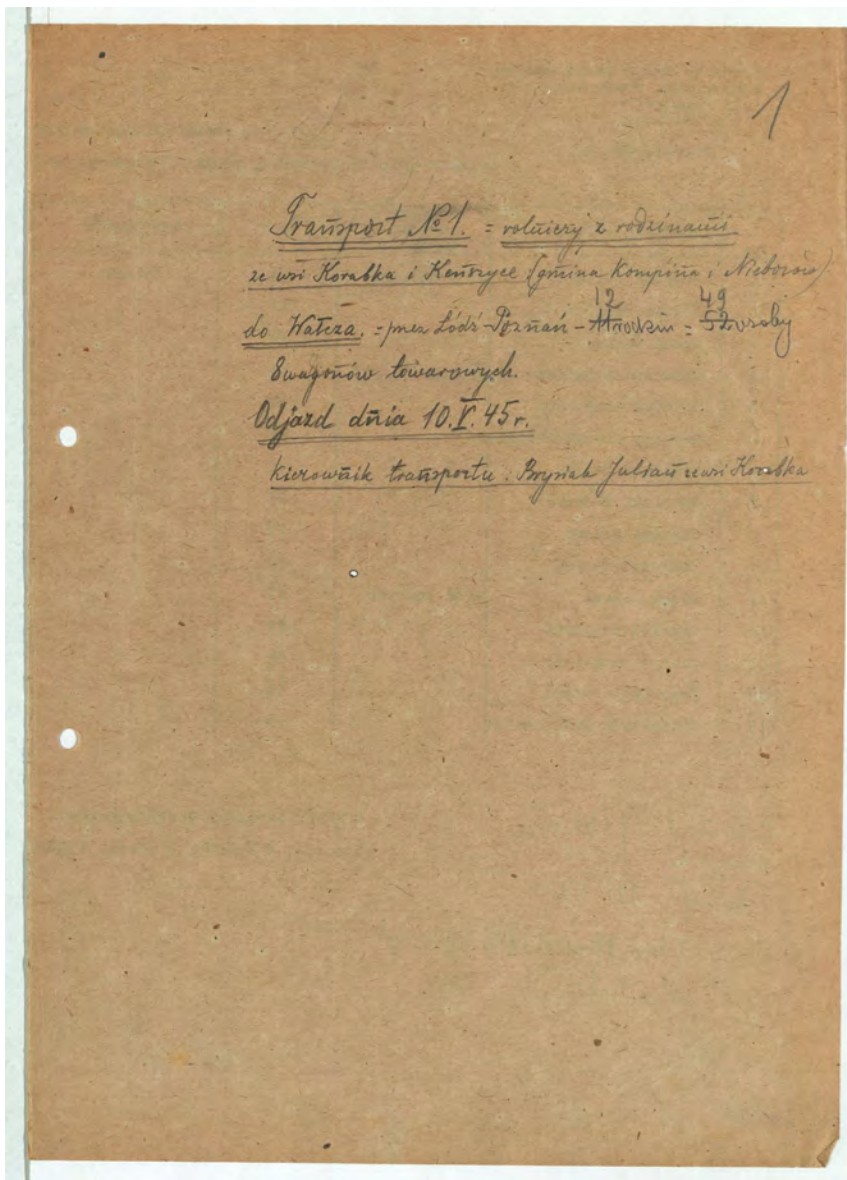 1
Transport № 1. = rolniczy z rodzinami
ze wsi Korabka i Kenszyce (gmina Kompina i Nieborów)
12 49
do Wałcza. = przez Łódź - Poznań - = 52 osoby
8 wagonów towarowych.
Odjazd dnia 10.V.45 r.
kierownik transportu: Brysiak Julian ze wsi Korabka